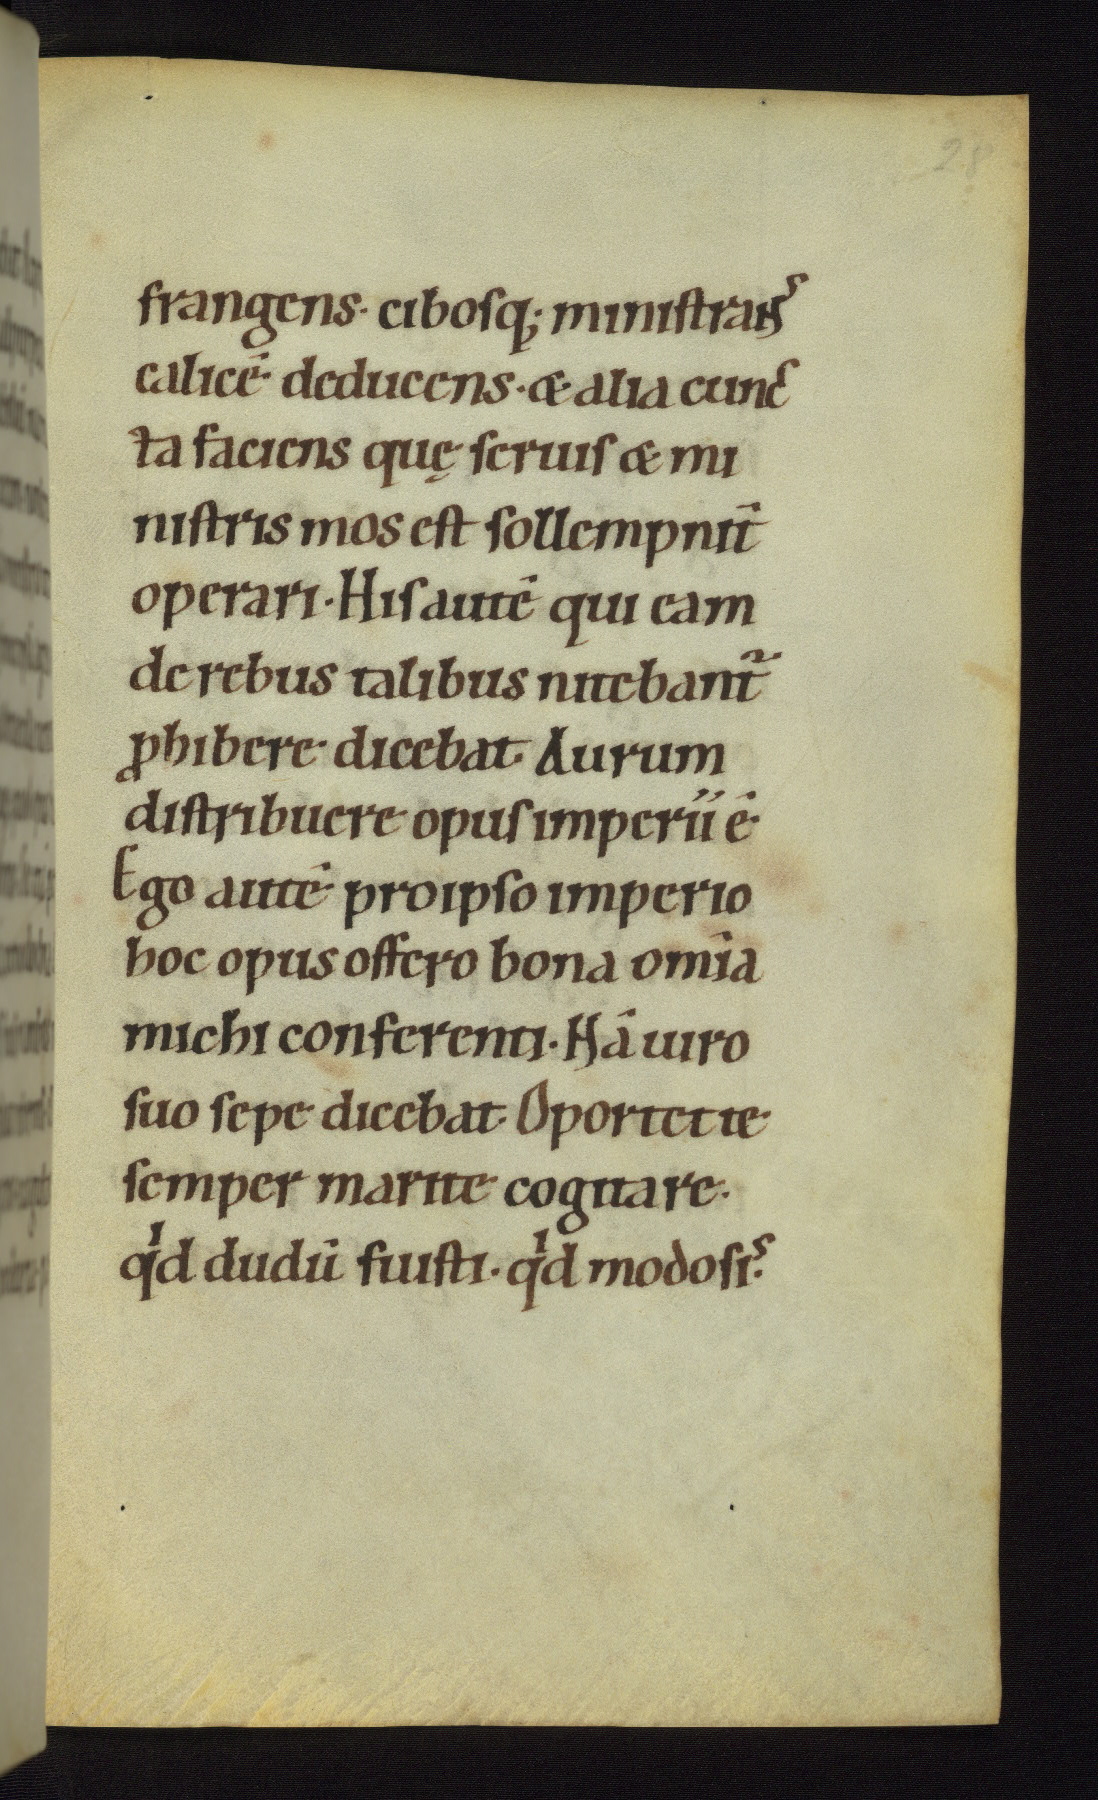 28
frangens· cibosq; ministrans
calicē· deducens· & alia cunc
ta faciens quę seruis & mi
nistris mos est sollempnit̄
operari· His autē qui eam
de rebus talibus nitebant᷑
ꝓhibere· dicebat· Aurum
distribuere opus imperii ē·
Ego autē pro ipso imperio
hoc opus offero bona om̄ia
michi conferenti· Nā uiro
suo sepe dicebat· Oportet te
semper marite cogitare·
qͥd dudū fuisti· qͥd modo sis·